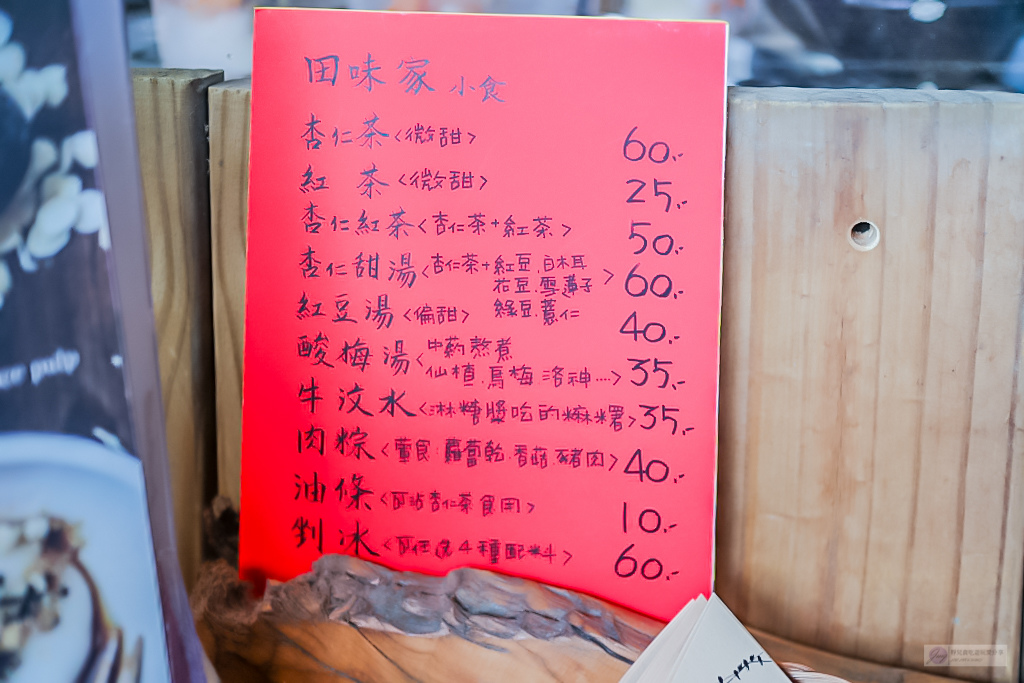 田味家 小食
杏仁茶<微甜> 60.-
紅茶<微甜> 25.-
杏仁紅茶<杏仁茶+紅茶> 50.-
杏仁甜湯<杏仁茶+紅豆.白木耳 花豆.雪蓮子 綠豆.薏仁> 60.-
紅豆湯<偏甜> 40.-
酸梅湯<中藥熬煮 仙楂.烏梅.洛神....> 35.-
牛汶水<淋糖漿吃的麻糬> 35.-
肉粽<葷食:蘿蔔乾.香菇.豬肉> 40.-
油條<可沾杏仁茶食用> 10.-
剉冰<可任選4種配料> 60.-
pulp